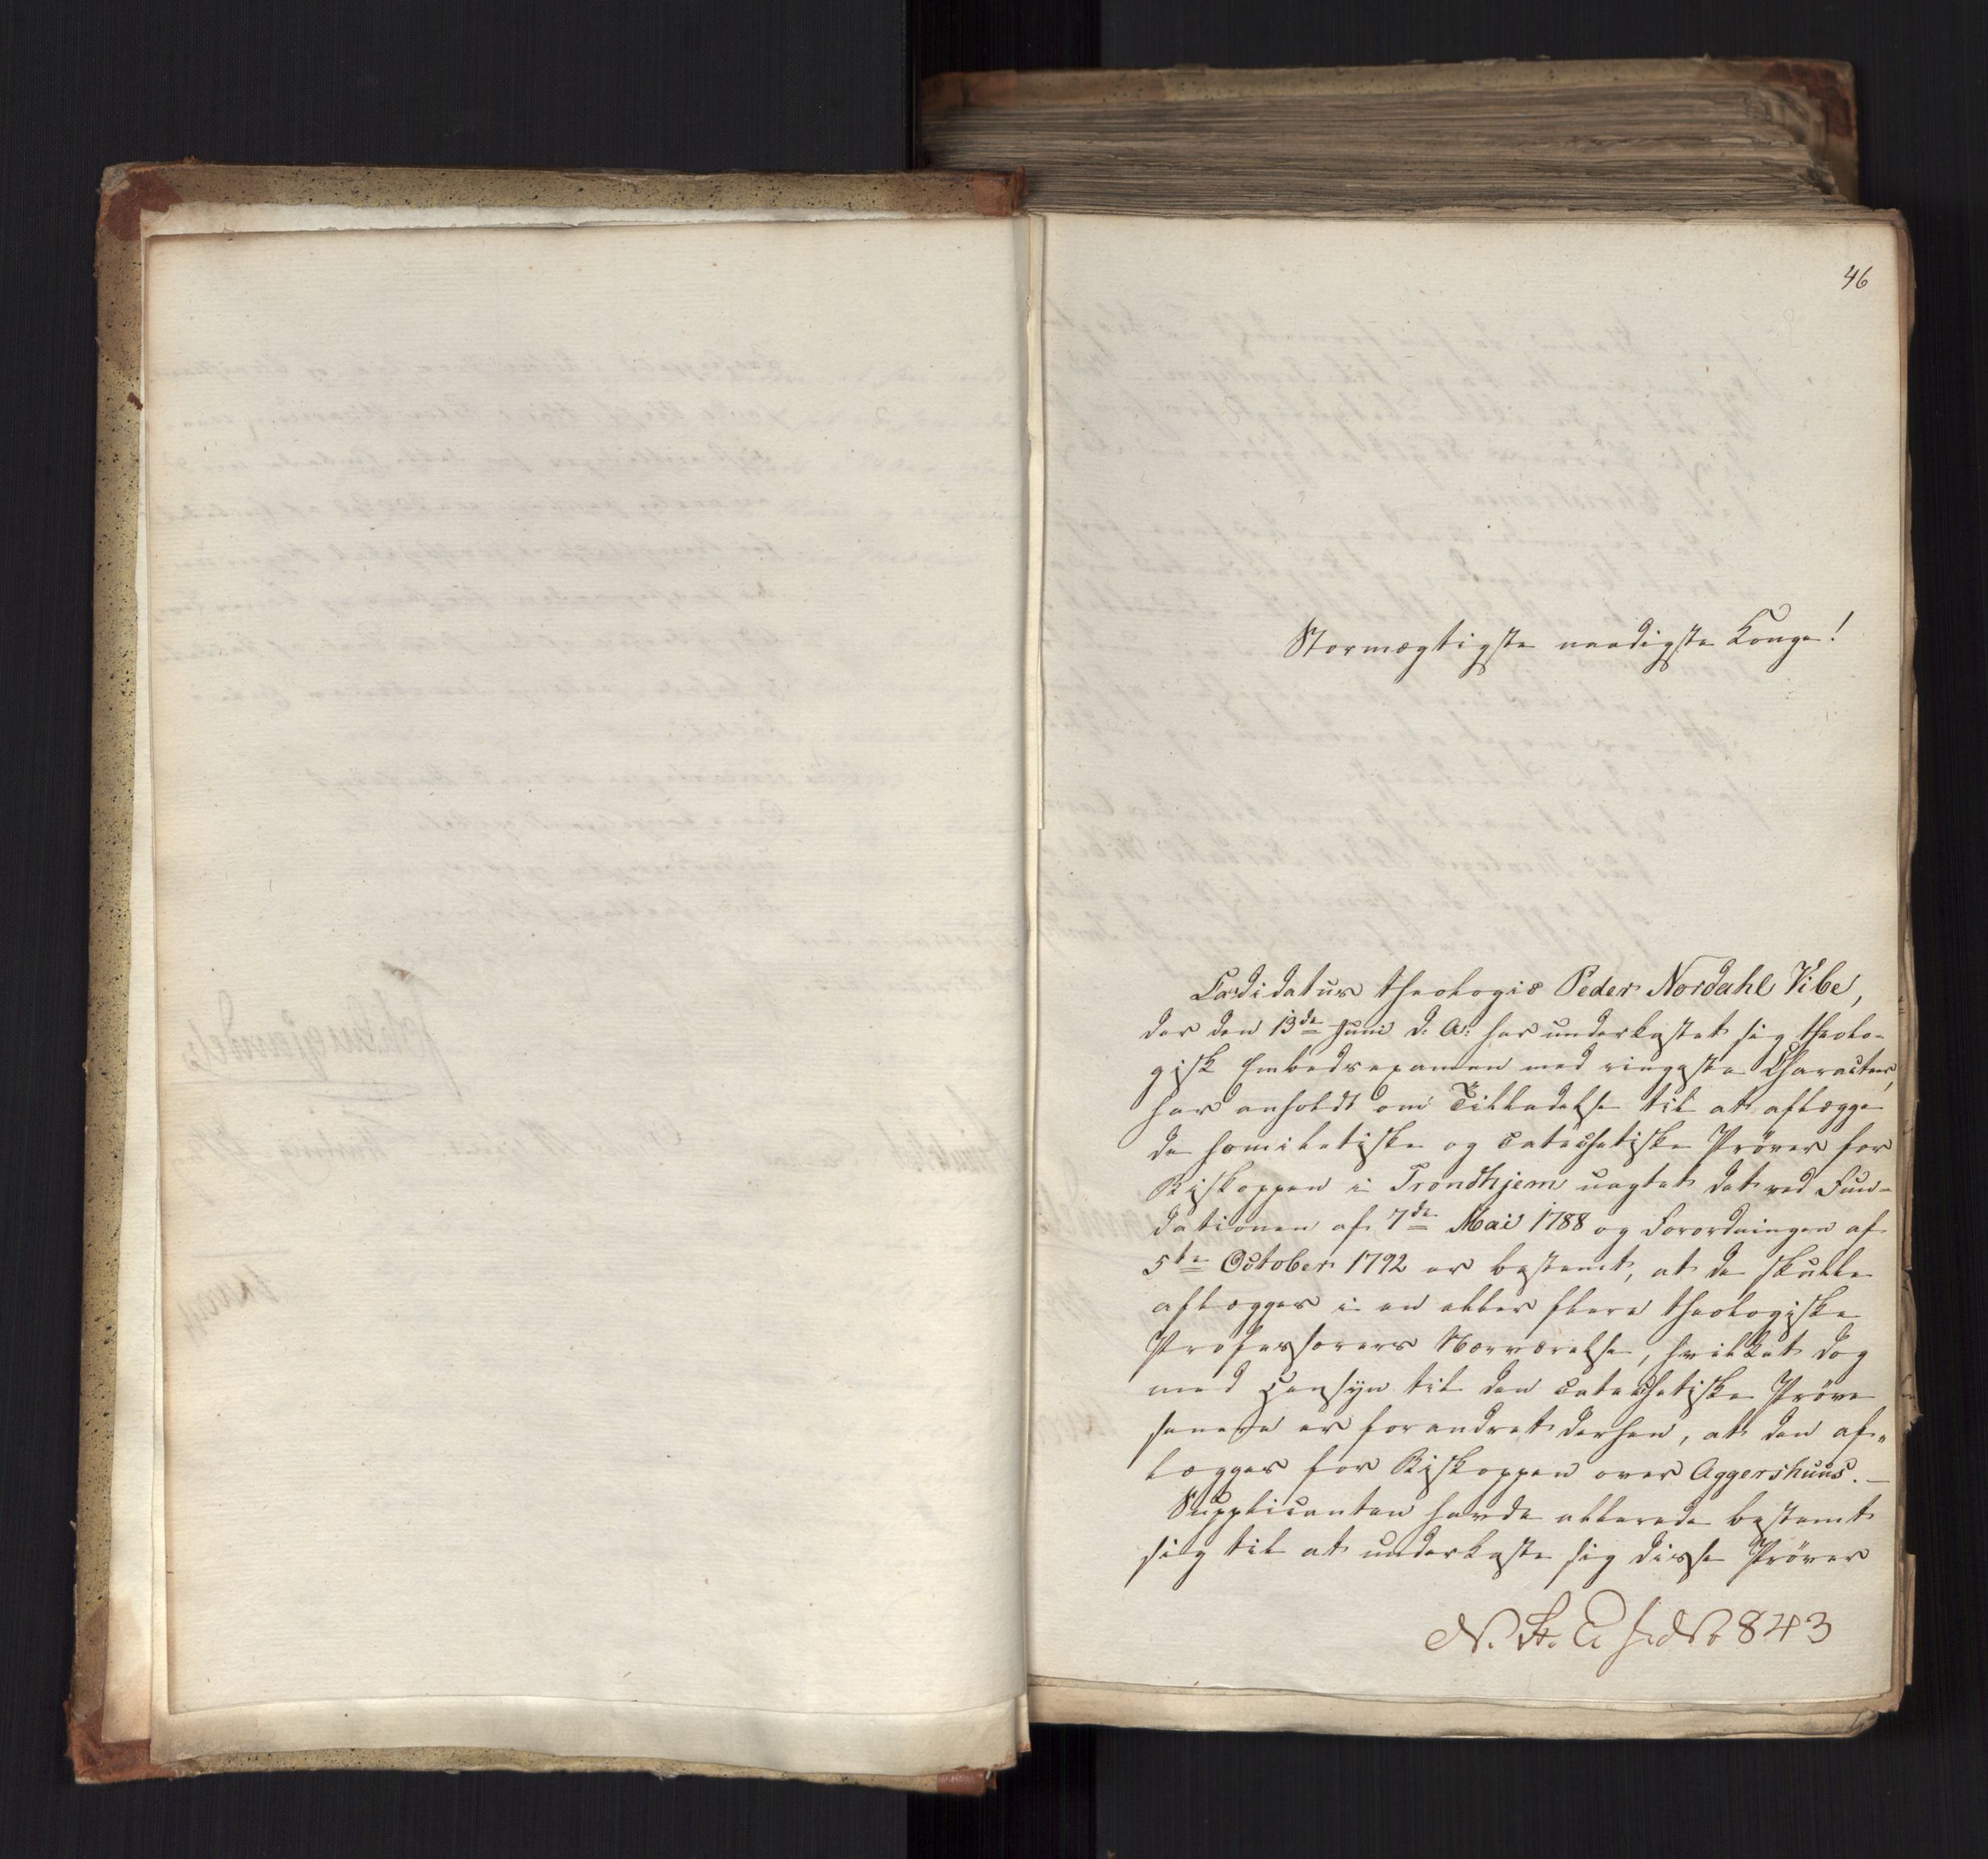 46
Stormægtigste naadigste Konge!
Candidatus theologiæ Peder Nordahl Vibe,
der den 13de Juni d: A: har underkastet sig theolo-
gisk Embedsexamen med ringeste Character,
har anholdt om Tilladelse til at aflægge
de homiletiske og catechetiske Prøver for
Biskoppen i Trondhjem uagtet det ved Fun-
dationen af 7de Mai 1788 og Forordningen af
5te October 1792 er bestemt, at de skulle
aflægges i en eller flere theologiske
Professorers Nærværelse, hvilket dog
med Hensyn til den catechetiske Prøve
senere er forandret derhen, at den af-
lægges for Biskoppen over Aggershuus. –
Supplicanten havde allerede bestemt
sig til at underkaste sig disse Prøver
No 843